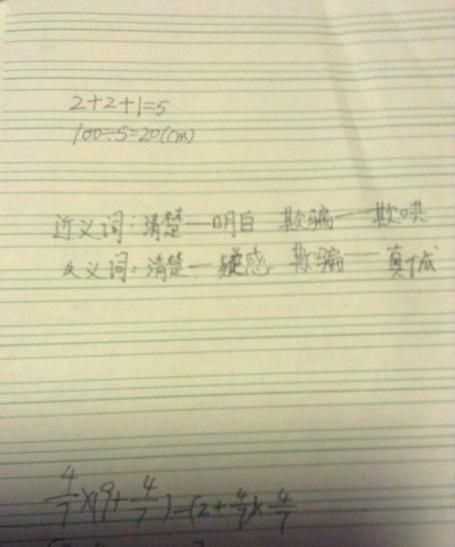 2+2+1=5
100÷5=20(cm)
近义词:清楚一明白 欺骗一欺哄
反义词:清楚一疑惑 欺骗一真诚
4/7×(9+4/7)-(2+4/7)×4/7